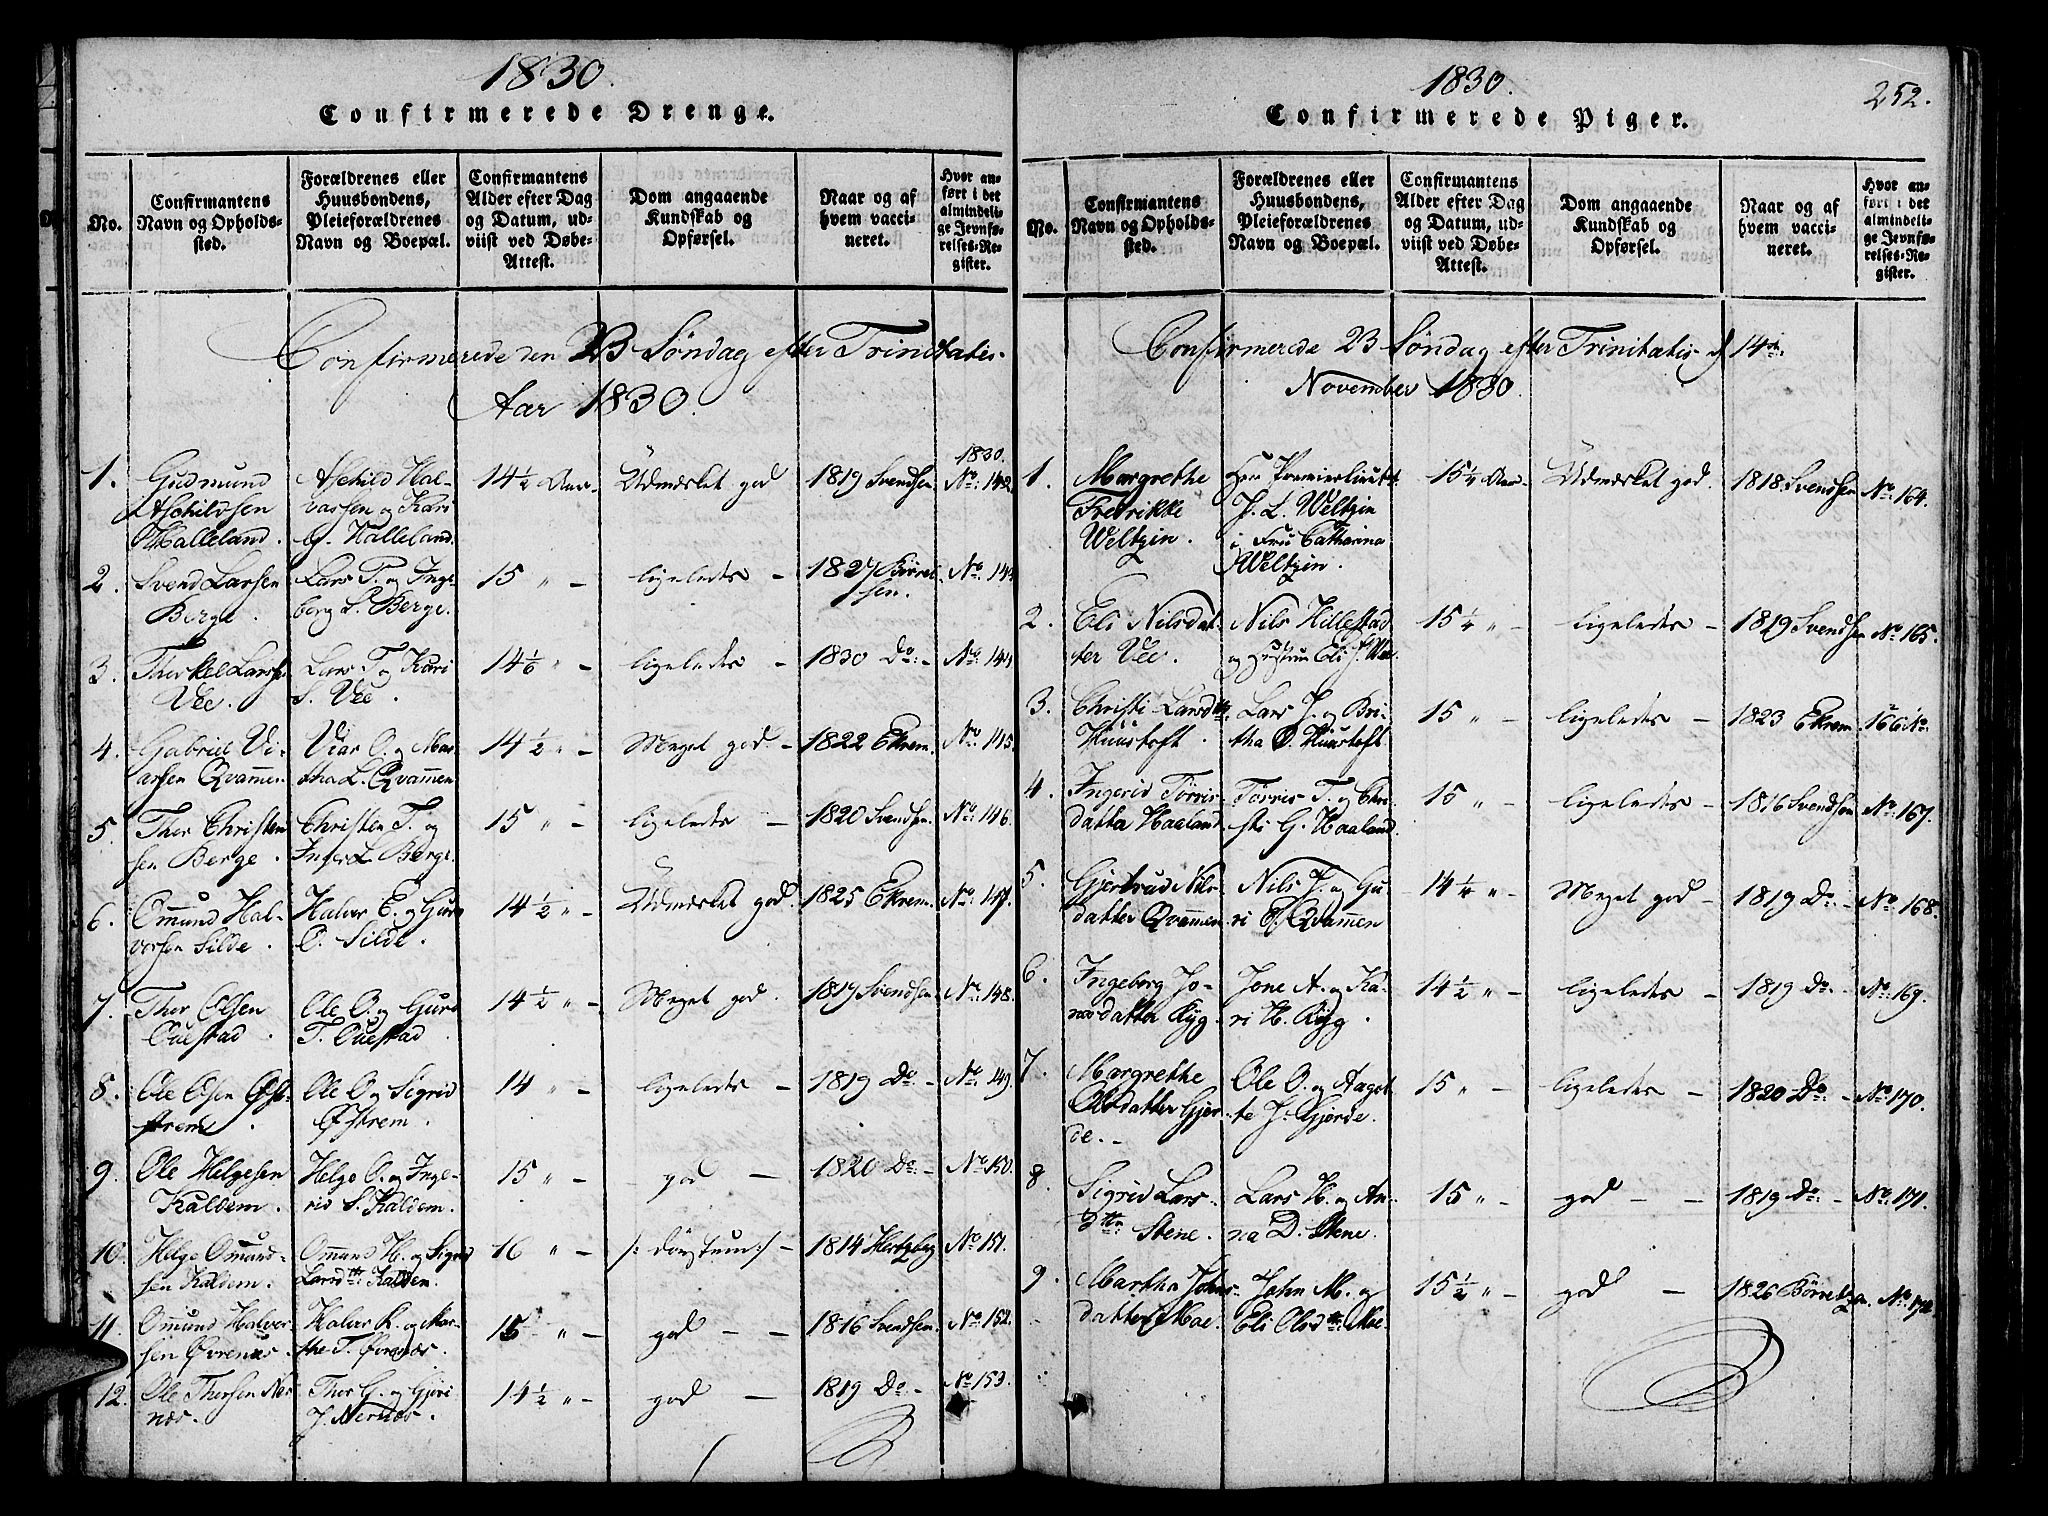 1830.
Confirmerede Drenge.
No.
Confirmantens
Navn og Opholds-
sted.
Forældrenes eller
Huusbondens,
Pleieforældrenes
Navn og Boepæl.
Confirmantens
Alder efter Dag
og Datum, ud-
viist ved Døbe-
Attest.
Dom angaaende
Kundskab og
Opførsel.
Naar og af
hvem vacci-
neret.
Hvor an-
ført i det
almindeli-
ge Jevnfø-
relses-Re-
gister.
Confirmerede den 23 Søndag efter Trinitatis
Aar 1830.
1.
Gudmund
Aschildsen
Halleland.
Aschild Hal-
vorsen og Kari
G. Halleland.
14 1/2 Aar
Udmærket god
1819 Svendsen.
1830.
No: 142.
2.
Svend Larsen
Berge.
Lars T. og Inge-
borg S. Berge.
15 " -
ligeledes -
1827 Børret-
sen.
No: 143
3.
Therkel Larsen
Vee.
Lars T. og Kari
S. Vee.
14 1/6 " -
ligeledes -
1830 Do: -
No: 144
4.
Gabriel Vi-
arsen Qvammen
Viar O. og Mar-
tha L. Qvammen
14 1/2 " -
Meget god -
1822 Ekrem.
No: 145.
5.
Thor Christen
sen Berge.
Christen T. og
Inger L. Berge.
15 " -
ligeledes -
1820 Svendsen.
No: 146.
6.
Omund Hal-
vorsen Silde.
Halvor E. og Guro
O. Silde.
14 1/2 " -
Udmærket god.
1825 Ekrem.
No: 147.
7.
Thor Olsen
Ouestad.
Ole O. og Guro
T. Ouestad.
14 1/2 " -
Meget god.
1819 Svendsen
No: 148.
8.
Ole Olsen Øst-
strem.
Ole O. og Sigrid
Øststrem.
14 " -
ligeledes -
1819 Do -
No: 149.
9.
Ole Helgesen
Kaldem.
Helge O. og Inge-
rid S. Kaldem.
15 " -
god -
1820 Do -
No: 150.
10.
Helge Omund-
sen Kaldem.
Omund H. og Sigrid
Larsdtr: Kaldem.
16 " -
1814 Hertzberg
No: 151.
11.
Omund Halvor-
sen Øvrenæs.
Halvor K. og Mar-
the T. Øvrenæs.
15 " -
god - -
1816 Svendsen.
No: 152.
12.
Ole Thorsen Ner
næs.
Thor G. og Guri
J. Nernæs.
14 1/2 " -
god -
1819 Do -
No: 153.
1830.
252.
Confirmerede Piger.
No.
Confirmantens
Navn og Opholds-
sted.
Forældrenes eller
Huusbondens,
Pleieforældrenes
Navn og Boepæl.
Confirmantens
Alder efter Dag
og Datum, ud-
viist ved Døbe-
Attest.
Dom angaaende
Kundskab og
Opførsel.
Naar og af
hvem vacci-
neret.
Hvor an-
ført i det
almindeli-
ge Jevnfø-
relses-Re-
gister.
Confirmerede 23 Søndag efter Trinitatis d 14de
November 1830.
1.
Margrethe
Fredrikke
Weltzin.
Herr Premierlieut:
J. L. Weltzin
Fru Catharina
Weltzin.
15 1/4 Aar
Udmærket god.
1818 Svendsen
No: 164.
2.
Eli Nilsdat-
ter Vee.
Nils Hillestad
og Hustrue Eli J. Vee.
15 1/4 " -
ligeledes -
1819 Svendsen
No: 165.
3.
Christi Larsdtr.
Huustoft.
Lars J. og Bri-
tha O. Huustoft.
15 " -
ligeledes -
1823 Ekrem
166 No
4.
Ingerid Tørris-
datter Haaland
Tørris T. og Chri-
sti G. Haaland.
15 " -
ligeledes -
1816 Svendsen
No: 167.
5.
Gjertrud Nils-
datter Qvammen
Nils J. og Gu-
ri O. Qvammen
14 1/4 " -
Meget god -
1819 Do: -
No: 168.
6.
Ingeborg Jo-
nasdatter Ryg
Jone A. og Ka-
ri H. Ryg.
14 1/2 " -
ligeledes -
1819 Do: -
No: 169.
7.
Margrethe
Olsdatter Gjer-
de. -
Ole O. og Aagot-
te J. Gjerde.
15 " -
ligeledes -
1820 Do: -
No: 170.
8.
Sigrid Lars-
dtr. Stene.
Lars H. og An-
na D. Stene.
15 " -
god - -
1819 Do: -
No: 171.
9.
Martha Johns-
datter Moe
John M. og
Eli Olsdtr: Moe
15 1/2 " -
god -
1826 Børretzen.
No: 172